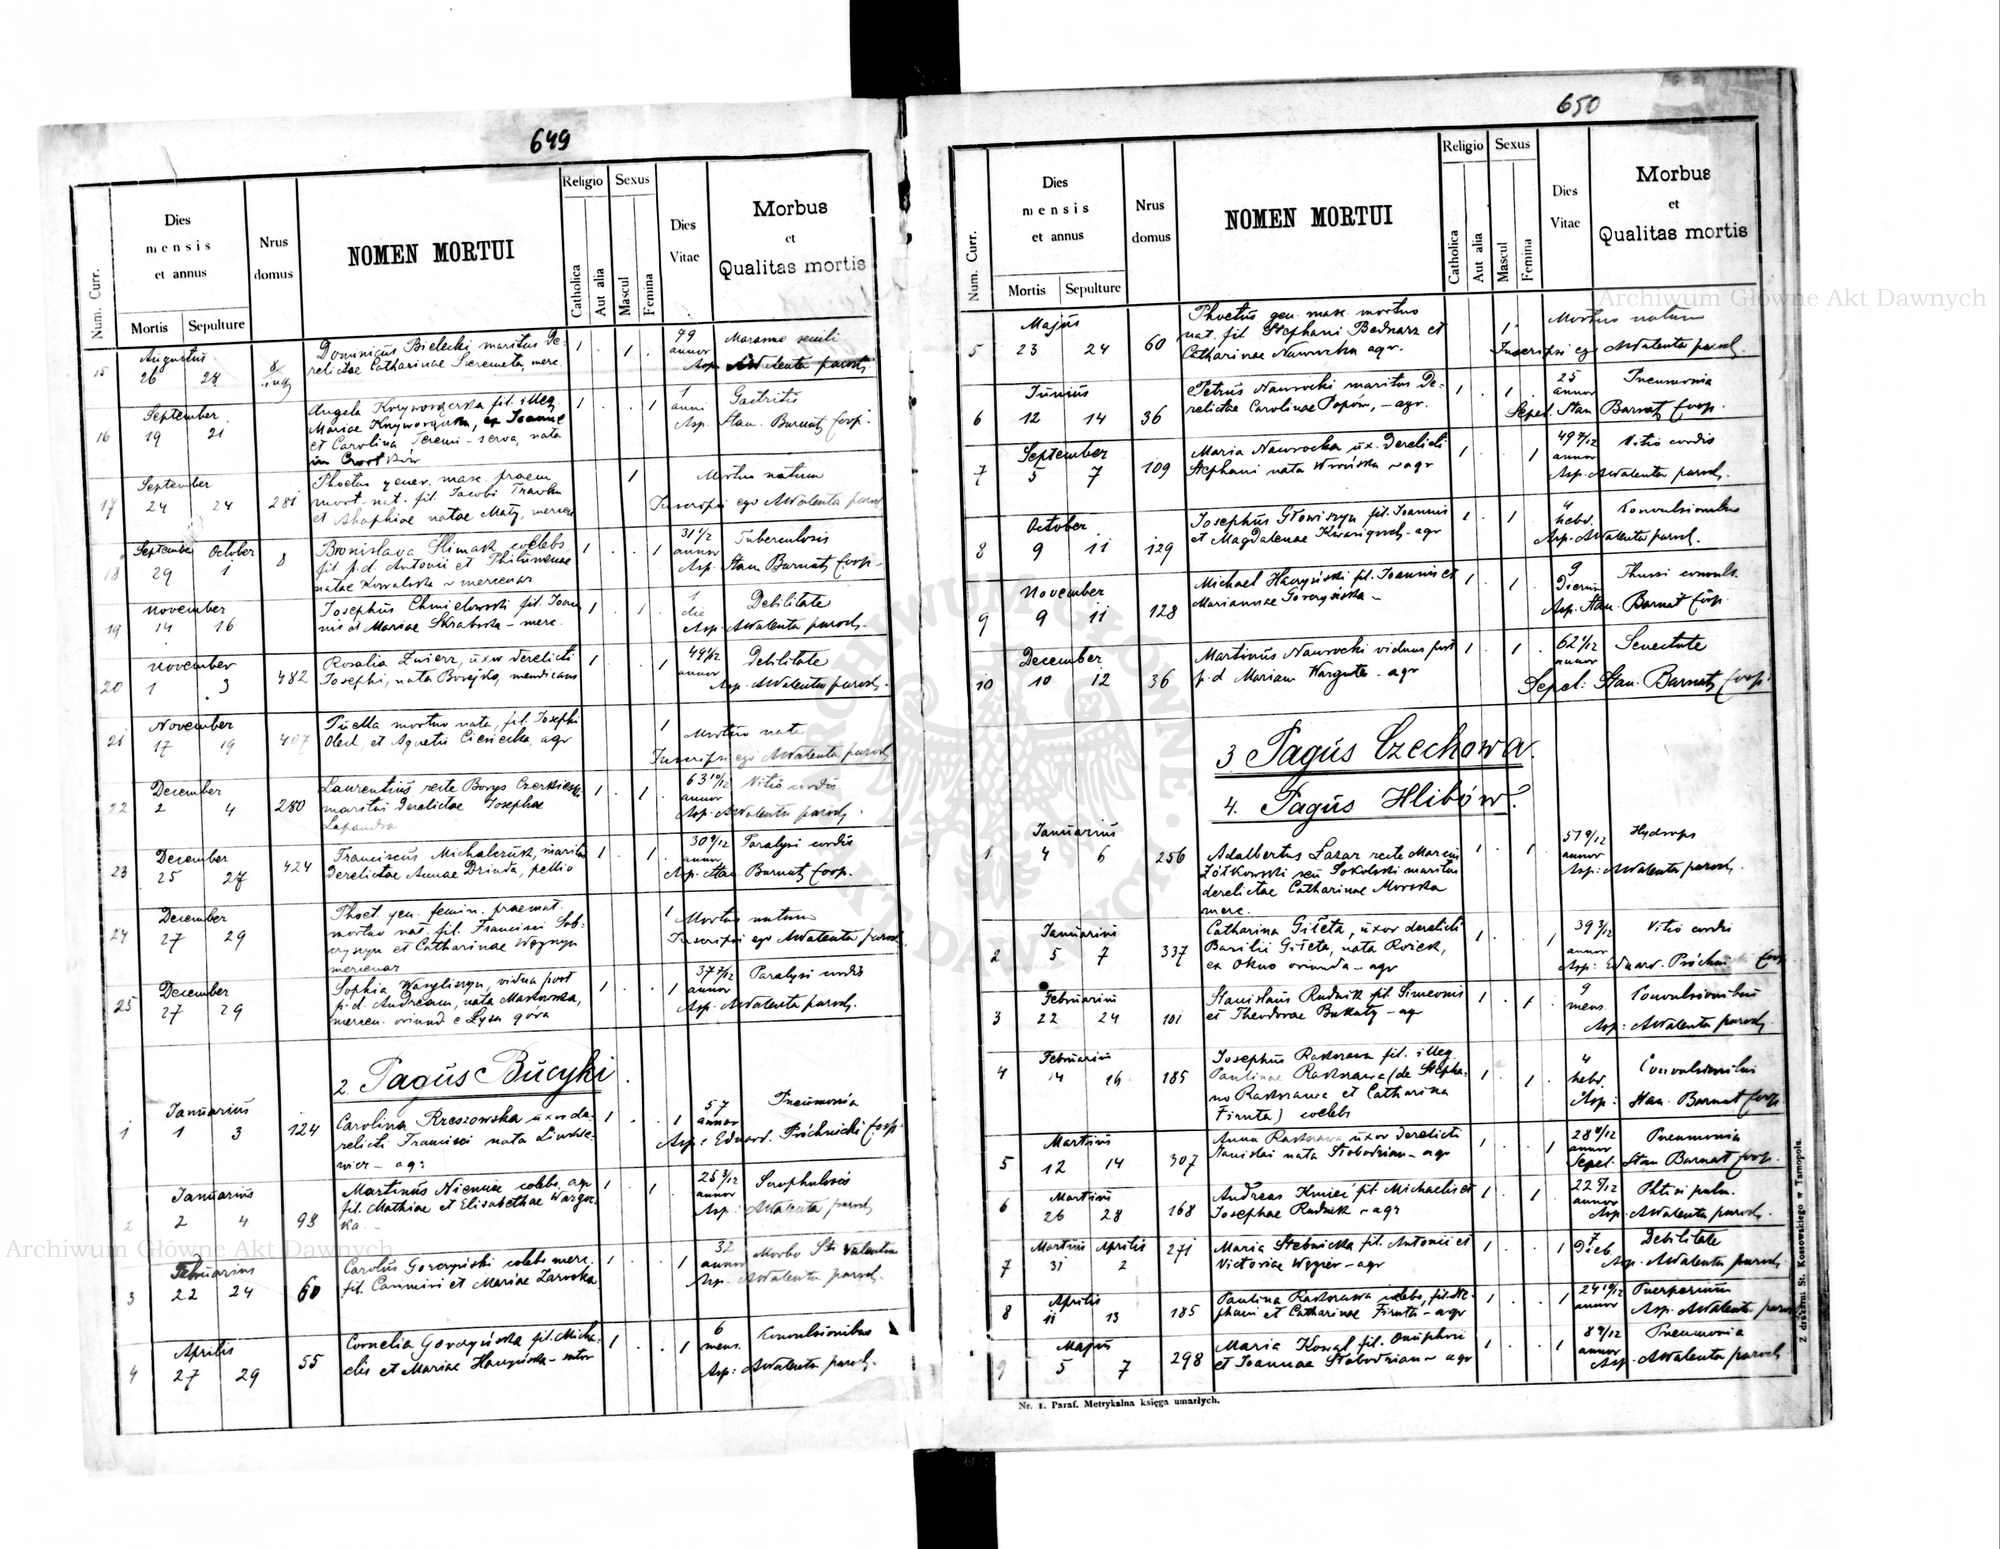 649
Num. Curr.
Dies mensis et annus
Mortis Sepulture
Nrus domus
NOMEN MORTUI
Religio
Catholica
Aut alia
Sexus
Mascul
Femina
Dies Vitae
Morbus et Qualitas mortis
15 Augustus 26 28
Dominicus Bielecki maritus De-
relictae Catharinae Seremeta, merc.
79 annor Marasmo senili
16 September 19 21
Angela Kryworączka fil. illeg.
Mariae Kryworączka, ex Joanne
et Carolina Jeremi - serva, nata
in Czortków
1 anni Gastritis
Asp. Stan. Barnatz Coop.
17 September 24 24 281
Phoetus gener. masc. praem.
mort. nat. fil. Jacobi
et natae merc
Mortuo natum
Inscripsi ego AWalenta paroch
18 September October 29 1 8
Bronislava Slimak coelebs
fil p.d. Antonii et Philumenae
natae Kowalska ~ mercenar
31 1/2 annor Tuberculosis
Asp. Stan Barnatz Coop.
19 November 14 16
Josephus Chmielowski fil. Joan-
nis et Mariae Skrabska - merc.
1 die Debilitate
Asp. AWalenta paroch.
20 November 1 3 482
Rosalia Zwierz, uxor derelicti
Josephi, nata Borejko, mendicans
49 1/12 annor Debilitate
Asp. AWalenta paroch.
21 November 17 19 407
Puella mortuo nata, fil. Josephi
Olech, et Agnetis Cieniecka, agr
Mortuo nata
Inscripsi ego AWalenta paroch
22 December 2 4 280
Laurentius recte Borys
maritus derelictae Josephae
Lapandra
63 10/12 annor Vitio cordis
Asp. AWalenta paroch.
23 December 25 27 424
Franciscus Michalczuk, maritus
derelictae Annae Dziuda, pellio
30 9/12 annor Paralysi cordis
Asp. Stan. Barnatz Coop.
24 December 27 29
Phoet. gen. femin. praemat.
mortuo nat. fil. Francisci Sob-
czyszyn et Catharinae Węgrzyn
mercenar
Mortuo natum
Inscripsi ego AWalenta paroch.
25 December 27 29
Sophia Wasyliszyn, vidua post
p.d. Andream, nata Maskowska,
mercen. oriund e Lysa góra
37 7/12 annor Paralysi cordis
Asp. AWalenta paroch.
2. Pagus Bucyki
1 Januarius 1 3 124
Carolina Rzeszowska uxor de-
relicti Francisci nata
- agr
57 annor Pneumonia
Asp: Eduard. Próchnicki Coop.
2 Januarius 2 4 98
Martinus Niemiec coelebs, agr
fil. Mathiae et Elisabethae Wargoc-
ka. -
25 3/12 annor Scrophulosis
Asp: AWalenta paroch
3 Februarius 22 24 60
Carolus Gorczyński coelebs merc.
fil. Casimiri et Mariae Zarwska
32 annor Morbo Sti Valentini
Asp. AWalenta paroch.
4 Aprilis 27 29 55
Cornelia Gorczyńska fil. Micha-
elis et Mariae Haczyńska - sutor
6 mens. Convulsionibus
Asp: AWalenta paroch.
650
Num. Curr.
Dies mensis et annus
Mortis Sepulture
Nrus domus
NOMEN MORTUI
Religio
Catholica
Aut alia
Sexus
Mascul
Femina
Dies Vitae
Morbus et Qualitas mortis
5 Majus 23 24 60
Phoetus gen. masc. mortuo
nat. fil Stephani Bednarz et
Catharinae Nawrocka agr.
Mortuo natum
Inscripsi ego AWalenta paroch.
6 Junius 12 14 36
Petrus Nawrocki maritus De-
relictae Carolinae Popów, - agr.
25 annor Pneumonia
Sepel. Stan Barnatz Coop.
7 September 5 7 109
Maria Nawrocka ux. derelicti
Stephani nata Wrońska ~ agr
49 7/12 annor Vitio cordis
Asp. AWalenta paroch.
8 October 9 11 129
Josephus Głowiszyn fil. Joannis
et Magdalenae - agr
4 hebd. Convulsionibus
Asp. AWalenta paroch.
9 November 9 11 128
Michael Haczyński fil. Joannis et
Mariannae Gorczyńska -
9 Dierum Thussi convuls.
Asp. Stan. Barnat Coop.
10 December 10 12 36
Martinus Nawrocki viduus post
p.d Mariam Warguta - agr
62 1/12 annor Senectute
Sepel: Stan. Barnatz Coop.
3 Pagus Czechowa.
4. Pagus Hlibów.
1 Januarius 4 6 256
Adalbertus Lazar recte Marcus
Żółkowski seu Sokolski maritus
derelictae Catharinae Morska
merc.
57 9/12 annor Hydrops
Asp: AWalenta paroch.
2 Januarius 5 7 337
Catharina Gileta, uxor derelicti
Basilii Gileta, nata Rożek,
ex Okno oriunda - agr
39 2/12 annor Vitio cordis
Asp: Eduard. Próchnicki Coop
3 Februarius 22 24 101
Stanislaus Rudnik fil. Simeonis
et Theodorae Bukaty - agr
9 mens. Convulsionibus
Asp: AWalenta paroch.
4 Februarius 14 16 185
Josephus Raksrawa fil. illeg.
Paulinae Raksrawa (de Stepha-
no Raksrawa et Catharina
Firuta) coelebs
4 hebd. Convulsionibus
Asp: Stan. Barnat Coop
5 Martius 12 14 307
Anna uxor derelicti
Stanislai nata Slobodzian - agr
28 9/12 annor Pneumonia
Sepel. Stan Barnat Coop.
6 Martius 26 28 168
Andreas Kmieć fil. Michaelis et
Josephae Rudnik ~ agr
22 5/12 annor Phtisi pulm.
Asp. AWalenta paroch.
7 Martius Aprilis 31 2 271
Maria Stebnicka fil. Antonii et
Victoriae Węgier - agr
7 Dieb. Debilitate
Asp. AWalenta paroch
8 Aprilis 11 13 185
Paulina Raksrawa coelebs, fil. Ste-
phani et Catharinae Firuta - agr
24 10/12 annor Puerperium
Asp. AWalenta paroch
9 Majus 5 7 298
Maria Kowal fil. Onuphrii
et Joannae Slobodzian ~ agr
8 9/12 annor Pneumonia
Asp. AWalenta paroch
Nr. 1. Paraf. Metrykalna księga umarłych.
Z drukarni St. Kossowskiego w Tarnopolu.
Archiwum Główne Akt Dawnych
Archiwum Główne Akt Dawnych
ARCHIWUM GŁÓWNE AKT DAWNYCH